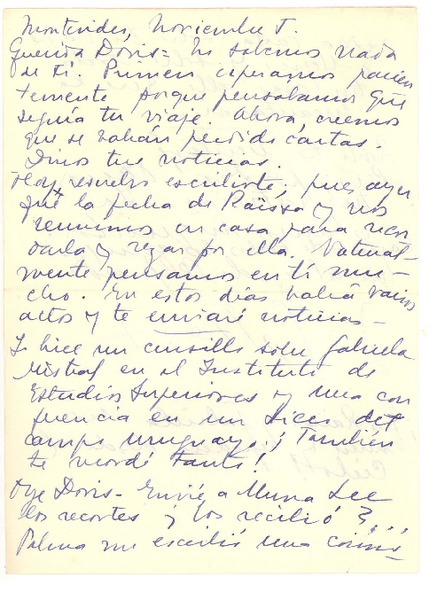 Montevideo, Noviembre 5.
Querida Doris = No sabemos nada
de ti. Primero esperamos pacien
temente porque pensábamos que
seguía tu viaje. Ahora, creemos
que se habrán perdido cartas.
Dinos tus noticias.
Hoy resuelvo escribirte, pues ayer
fué la fecha de y nos
reunimos en casa para recor
darla y rezar por ella. Natural-
mente pensamos en tí mu-
cho. En estos días habrá varios
actos y te enviaré noticias —
Yo hice un cursillo sobre Gabriela
Mistral en el Instituto de
Estudios Superiores y una con
ferencia en un Liceo del
campo uruguayo. ¡También
te recordé tanto!
Oye Doris - Envié a Muna Lee
los recortes ¿ los recibió ? ...
Palma me escribió una